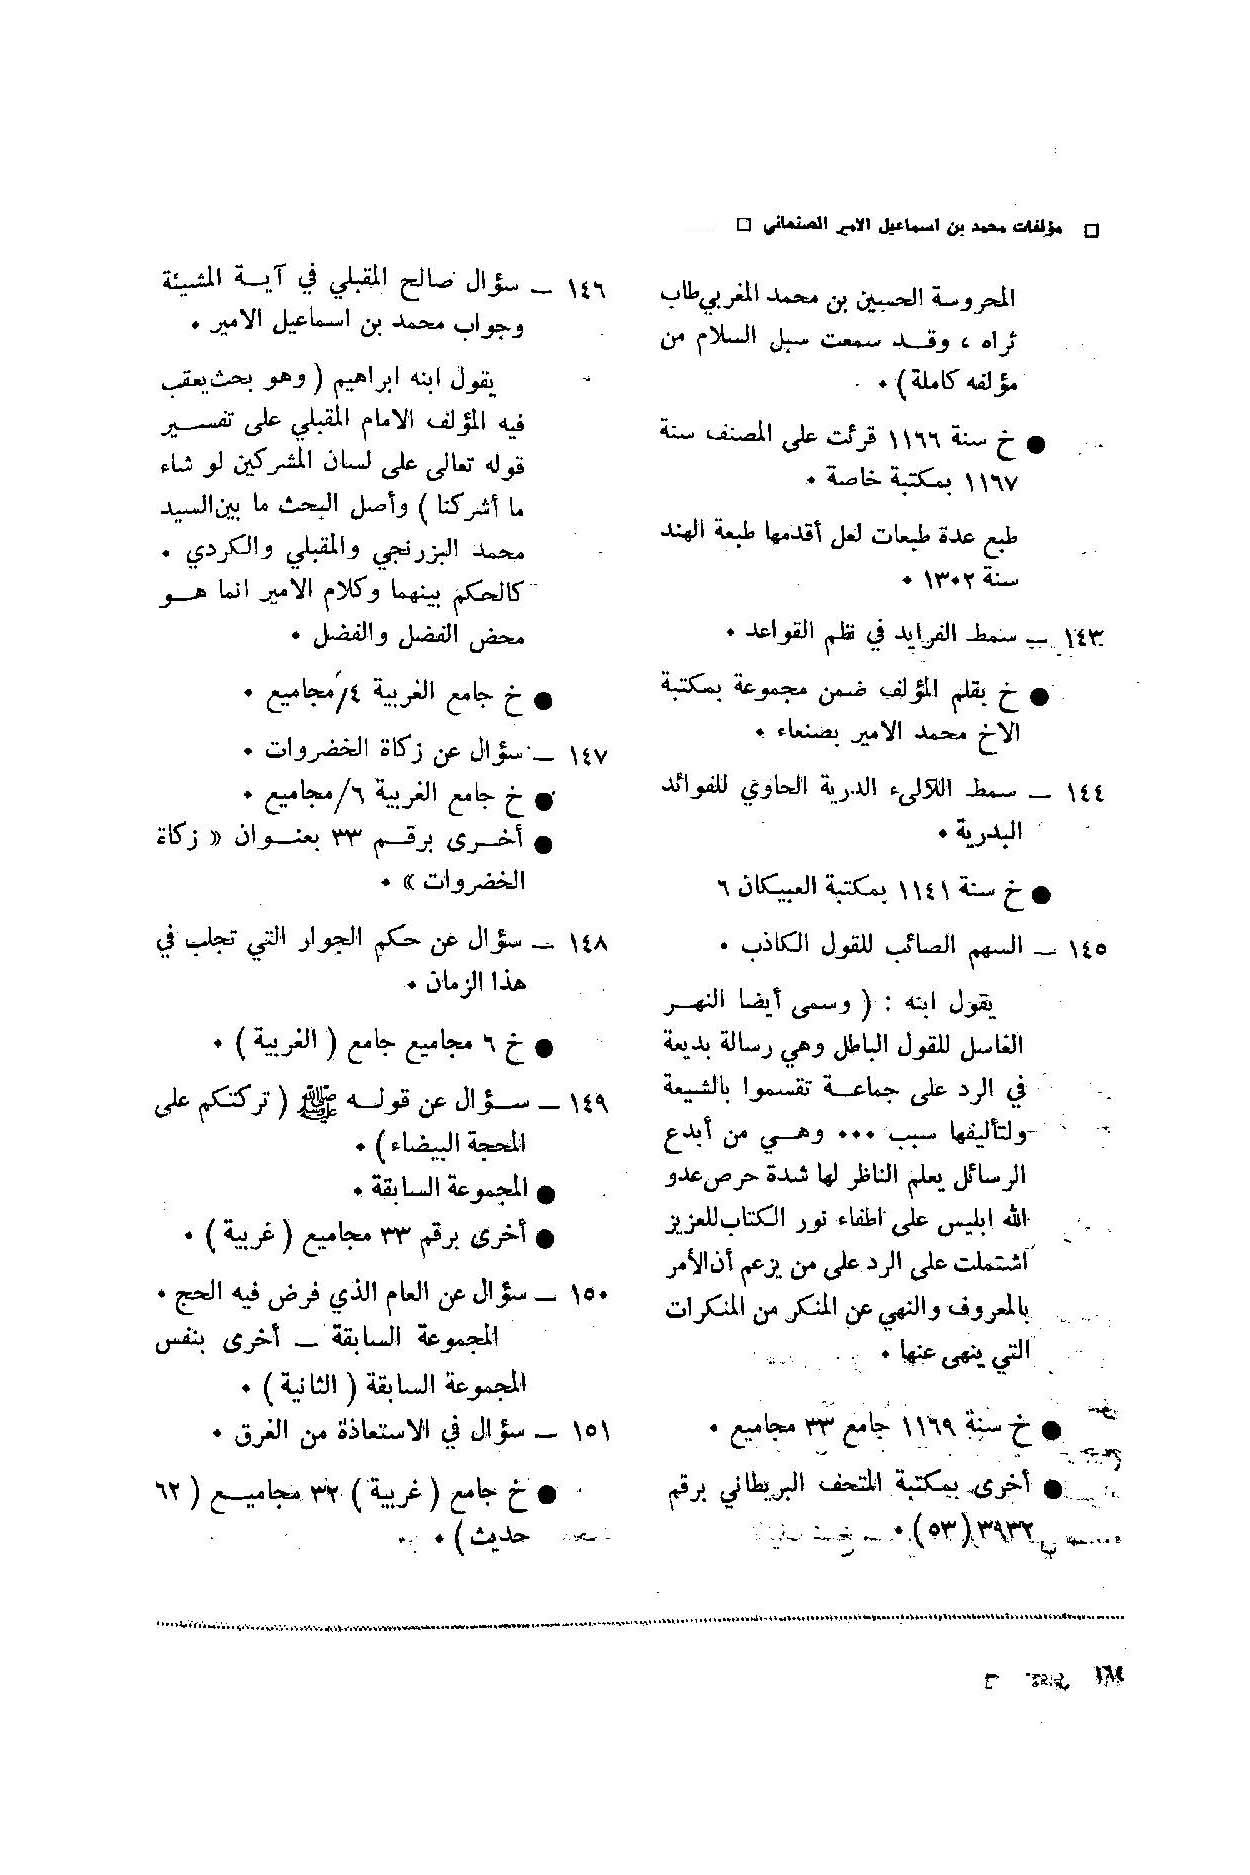 □ مؤلفات محمد بن اسماعيل الامير الصنعاني □
المحروسة الحسين بن محمد المغربي طاب
ثراه ، وقـد سمعت سبل السلام من
مؤلفه كاملة ) .
● خ سنة ١١٦٦ قرئت على المصنف سنة
١١٦٧ بمكتبة خاصة .
طبع عدة طبعات لعل أقدمها طبعة الهند
سنة ١٣٠٢ .
١٤٣ ـ سمط الفرايد في نظم القواعد .
● خ بقلم المؤلف ضمن مجموعة بمكتبة
الاخ محمد الامير بصنعاء .
١٤٤ ـ سمط اللآلىء الدرية الحاوي للفوائد
البدرية .
● خ سنة ١١٤١ بمكتبة العبيكان ٦
١٤٥ ـ السهم الصائب للقول الكاذب .
يقول ابنه : ( وسمى أيضا النهـر
الغاسل للقول الباطل وهي رسالة بديعة
في الرد على جماعـة تقسموا بالشيعة
ولتأليفها سبب ... وهـي من أبدع
الرسائل يعلم الناظر لها شدة حرص عدو
الله ابليس على اطفاء نور الكتاب للعزيز
اشتملت على الرد على من يزعم أن الأمر
بالمعروف والنهي عن المنكر من المنكرات
التي ينهى عنها .
● خ سنة ١١٦٩ جامع ٣٣ مجاميع .
● أخرى بمكتبة المتحف البريطاني برقم
٣٩٣٢ (٥٣) .
١٤٦ ـ سؤال صالح المقبلي في آيـة المشيئة
وجواب محمد بن اسماعيل الامير .
يقول ابنه ابراهيم ( وهو بحث يعقب
فيه المؤلف الامام المقبلي على تفسـير
قوله تعالى على لسان المشركين لو شاء
ما أشركنا ) وأصل البحث ما بين السيد
محمد البزرنجي والمقبلي والكردي .
كالحكم بينهما وكلام الامير انما هـو
محض الفضل والفضل .
● خ جامع الغربية ٤/مجاميع .
١٤٧ ـ سؤال عن زكاة الخضروات .
● خ جامع الغربية ٦/مجاميع .
● أخـرى برقـم ٣٣ بعنـوان « زكاة
الخضروات » .
١٤٨ ـ سؤال عن حكم الجوار التي تجلب في
هذا الزمان .
● خ ٦ مجاميع جامع ( الغربية ) .
١٤٩ ـ سـؤال عن قولـه ﷺ ( تركتكم على
المحجة البيضاء ) .
● المجموعة السابقة .
● أخرى برقم ٣٣ مجاميع ( غربية ) .
١٥٠ ـ سؤال عن العام الذي فرض فيه الحج .
المجموعة السابقة ـ أخرى بنفس
المجموعة السابقة ( الثانية ) .
١٥١ ـ سؤال في الاستعاذة من الغرق .
● خ جامع ( غربية ) ٣٢ مجاميـع ( ٦٢
حديث ) .